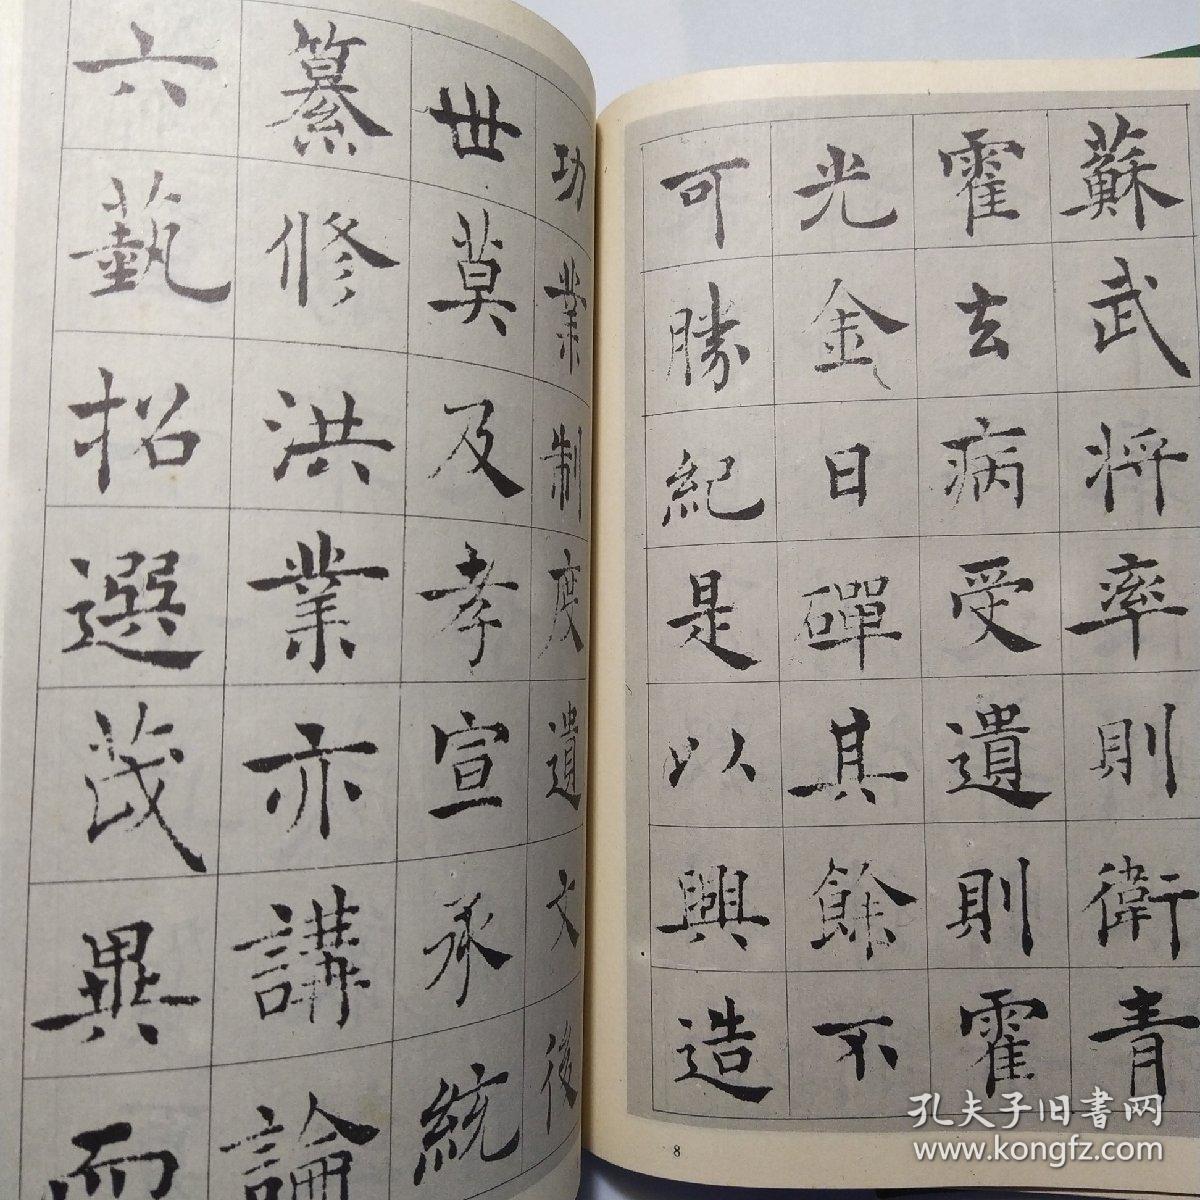 蘇武將率則衛青
霍去病受遺則霍
光金日磾其餘不
可勝紀是以興造
功業制度遺文後
世莫及孝宣承統
纂修洪業亦講論
六藝招選茂異而
8
孔夫子旧書网
www.kongfz.com